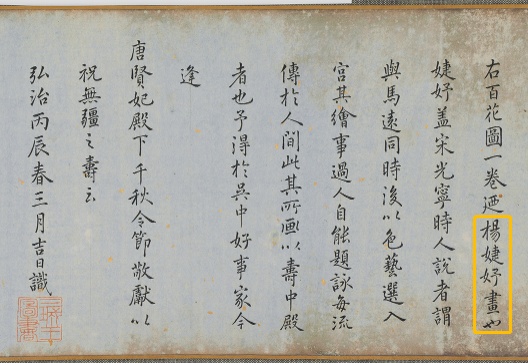 右百花圖一卷迺楊婕妤畫也
婕妤盖宋光寧時人說者謂
與馬遠同時後以色藝選入
宮其繪事過人自能題詠每流
傳於人間此其所画以壽中殿
者也予得於吳中好事家今
逢
唐賢妃殿下千秋令節敬獻以
祝無疆之壽云
弘治丙辰春三月吉日識